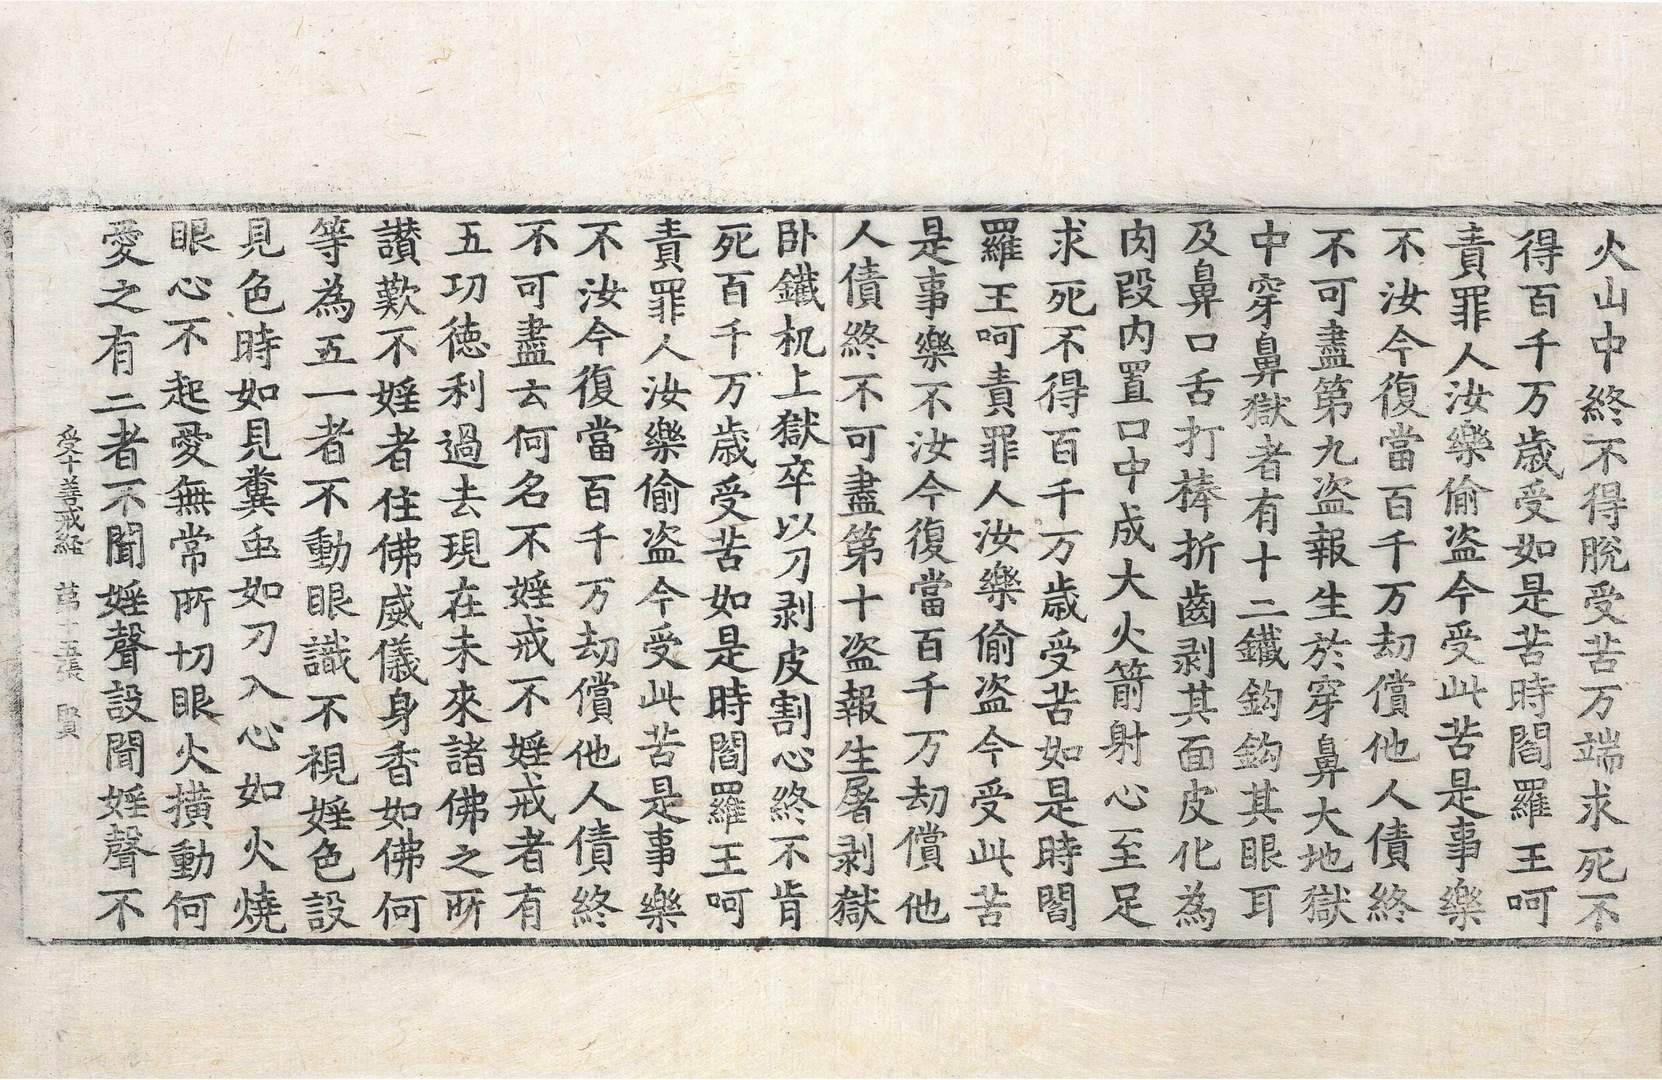 火山中終不得脫受苦万端求死不
得百千万歲受如是苦時閻羅王呵
責罪人汝樂偷盗今受此苦是事樂
不汝今復當百千万劫償他人債終
不可盡第九盗報生於穿鼻大地獄
中穿鼻獄者有十二鐵鉤鉤其眼耳
及鼻口舌打棒折齒剥其面皮化為
肉段内置口中成大火箭射心至足
求死不得百千万歲受苦如是時閻
羅王呵責罪人汝樂偷盗今受此苦
是事樂不汝今復當百千万劫償他
人債終不可盡第十盗報生屠剥獄
卧鐵机上獄卒以刀剥皮割心終不肯
死百千万歲受苦如是時閻羅王呵
責罪人汝樂偷盗今受此苦是事樂
不汝今復當百千万劫償他人債終
不可盡云何名不婬戒不婬戒者有
五功徳利過去現在未來諸佛之所
讃歎不婬者住佛威儀身香如佛何
等為五一者不動眼識不視婬色設
見色時如見糞虫如刀入心如火燒
眼心不起愛無常所切眼火擴動何
愛之有二者不聞婬聲設聞婬聲不
受十善戒経 苐十五張 賢